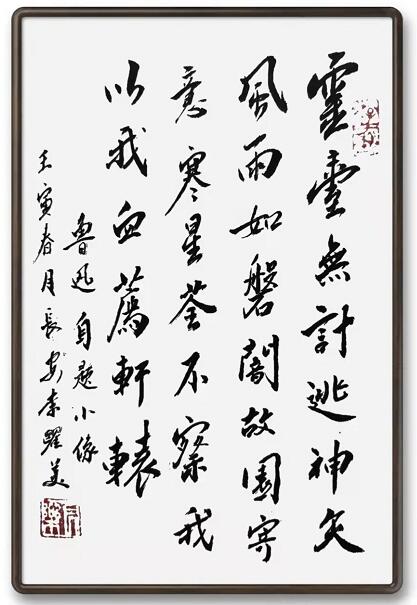 靈臺無計逃神矢
風雨如磐闇故園寄
意寒星荃不察我
以我血薦軒轅
魯迅自題小像
壬寅春月長安李美